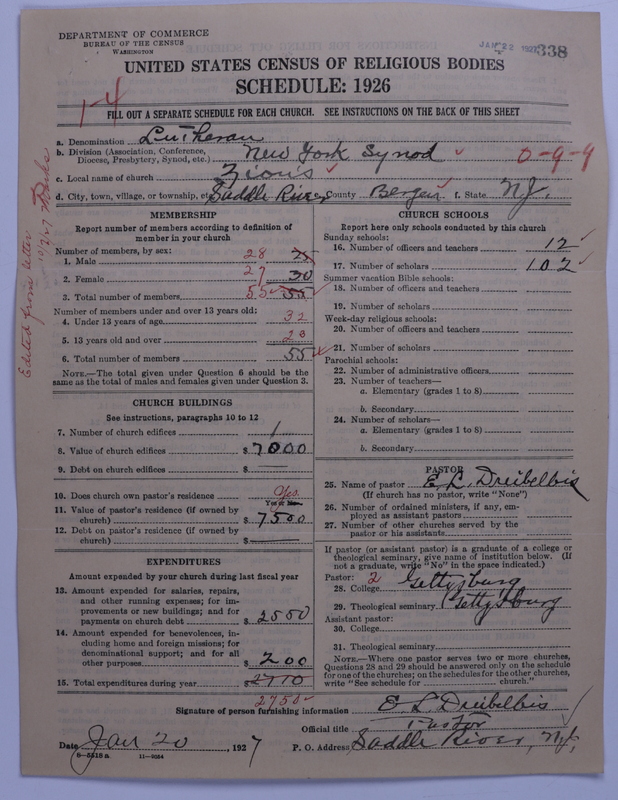 DEPARTMENT OF COMMERCE
BUREAU OF THE CENSUS
WASHINGTON
JAN 22 1927 338
UNITED STATES CENSUS OF RELIGIOUS BODIES
SCHEDULE: 1926
1-4
FILL OUT A SEPARATE SCHEDULE FOR EACH CHURCH. SEE INSTRUCTIONS ON THE BACK OF THIS SHEET
a. Denomination Lutheran
b. Division (Association, Conference, Diocese, Presbytery, Synod, etc.) New York Synod 0-9-9
c. Local name of church Zions
d. City, town, village, or township, etc. Saddle River County Bergen f. State N.J.
Edited from letter
MEMBERSHIP
Report number of members according to definition of
member in your church
Number of members, by sex:
1. Male 28 25
2. Female 27 30
3. Total number of members 55 55
Number of members under and over 13 years old:
4. Under 13 years of age 32
5. 13 years old and over 23
6. Total number of members 55
NOTE.—The total given under Question 6 should be
same as the total of males and females given under Question 3.
CHURCH BUILDINGS
See instructions, paragraphs 10 to 12
7. Number of church edifices 1
8. Value of church edifices $ 7000
9. Debt on church edifices $ —
10. Does church own pastor's residence Yes
Yes or No
11. Value of pastor's residence (if owned by
church) $ 7500
12. Debt on pastor's residence (if owned by
church) $ —
EXPENDITURES
Amount expended by your church during last fiscal year
13. Amount expended for salaries, repairs,
and other running expenses; for im-
provements or new buildings; and for
payments on church debt $ 2550
14. Amount expended for benevolences, in-
cluding home and foreign missions; for
denominational support; and for all
other purposes $ 200
15. Total expenditures during year $
2750
CHURCH SCHOOLS
Report here only schools conducted by this church
Sunday schools:
16. Number of officers and teachers 12
17. Number of scholars 102
Summer vacation Bible schools:
18. Number of officers and teachers
19. Number of scholars
Week-day religious schools:
20. Number of officers and teachers
21. Number of scholars
Parochial schools:
22. Number of administrative officers
23. Number of teachers—
a. Elementary (grades 1 to 8)
b. Secondary
24. Number of scholars—
a. Elementary (grades 1 to 8)
b. Secondary
PASTOR
25. Name of pastor E. L. Dreibelbis
(If church has no pastor, write "None")
26. Number of ordained ministers, if any, em-
ployed as assistant pastors
27. Number of other churches served by the
pastor or his assistants
If pastor (or assistant pastor) is a graduate of a college or
theological seminary, give name of institution below. (If
not a graduate, write "No" in the space indicated.)
Pastor: 2
28. College Gettysburg
29. Theological seminary Gettysburg
Assistant pastor:
30. College
31. Theological seminary
NOTE.—Where one pastor serves two or more churches,
Questions 28 and 29 should be answered only on the schedule
for one of the churches; on the schedules for the other churches,
write "See schedule for church."
Signature of person furnishing information E L Dreibelbis
Official title Pastor
Date Jan 20, 1927 P. O. Address Saddle River, N.J.